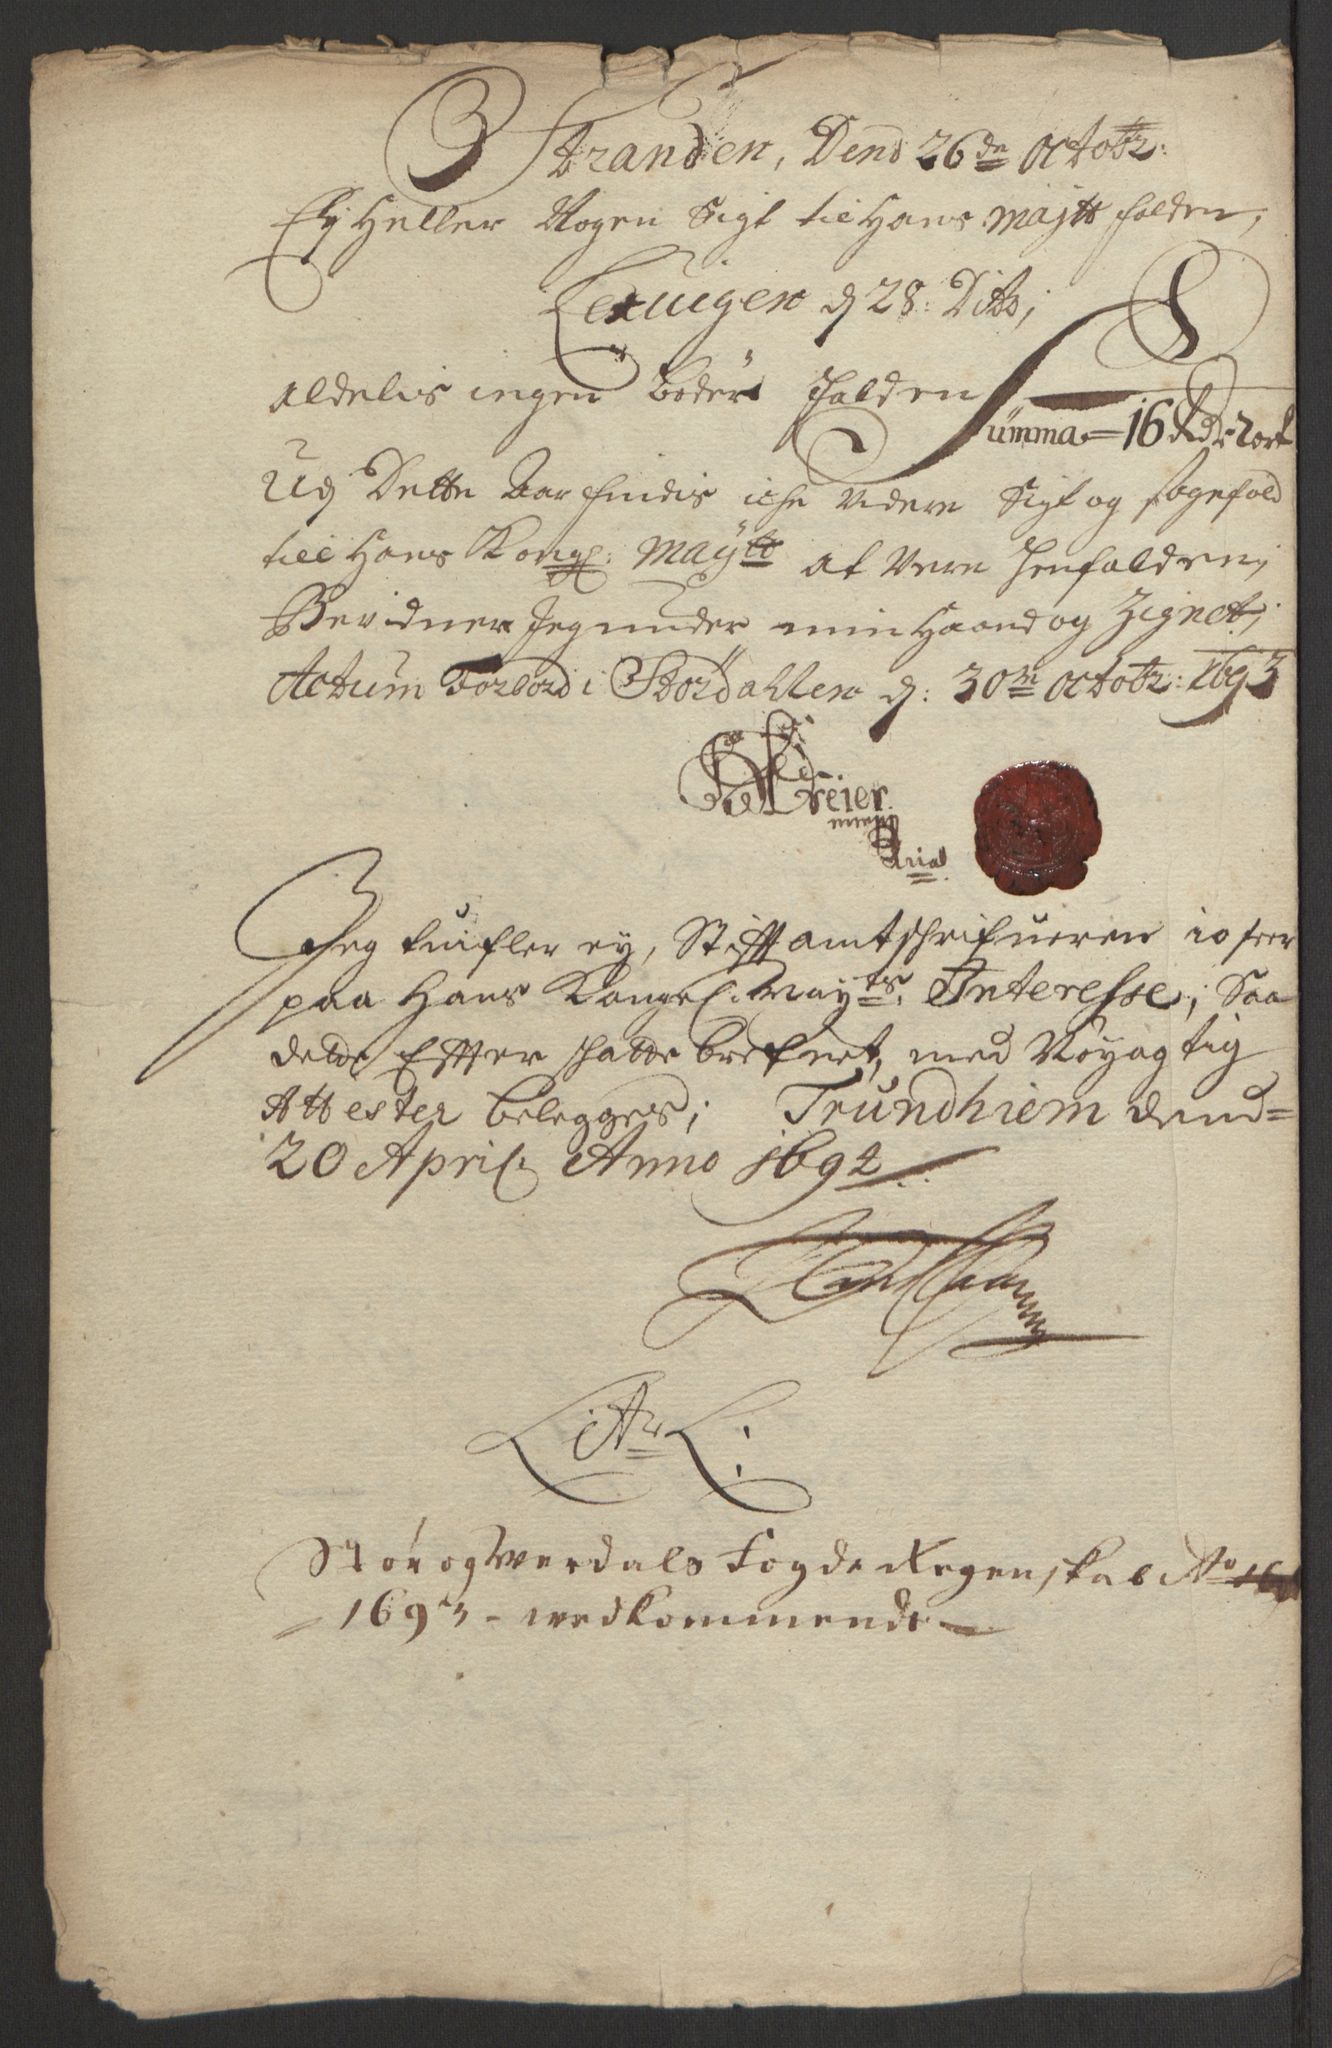 Stranden, Dend 26de Octobr:
Ey Heller Nogen Sigt til Hans Maÿtt falden,
Lexuigen d 28: Dito;
aldelis ingen bøder falden
Summa = 16 rdr 2 ort
Udj Dette Aar findis iche Videre Sigt og sagefald
till Hans Kongl: Maÿtt at Vere henfalden;
Bevidner Jeg under min Haand og Zignet;
Actum Forbord i Størdahlen d: 30de Octobr: 1693
Dreier
mp
Jeg tuifler ey, Stifftamtschrifueren io seer
paa Hans Kongel. Mayts Interesse; Saa
dette Effter schatte brefuet, med Nøyagtig
Attester belegges; Trundhiem dend
20 April Anno 1694
Litr L:
Stør og Werdals Fogde Regenskab Ao
1693 - wedkommende